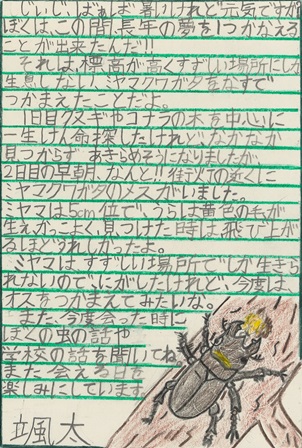 じぃじ、ばぁば暑いけれど元気ですか
ぼくは、この間、長年の夢を1つかなえる
ことが出来たんだ!!
それは、標高が高くすずしい場所にしか
生息しないミヤマクワガタを
つかまえたことだよ。
1日目クヌギやコナラの木を中心に
一生けん命探したけれど、なかなか
見つからず、あきらめそうになりましたが、
2日目の早朝、なんと!!街灯の近くに
ミヤマクワガタのメスがいました。
ミヤマは5cm位で、うらは黄色の毛が
生えかっこよく、見つけた時は飛び上が
るほどうれしかったよ。
ミヤマは、すずしい場所でしか生きら
れないのでにがしたけれど、今度は
オスをつかまえてみたいな。
また、今度会った時に
ぼくの虫の話や
学校の話を聞いてね。
また会える日を
楽しみにしています
颯太